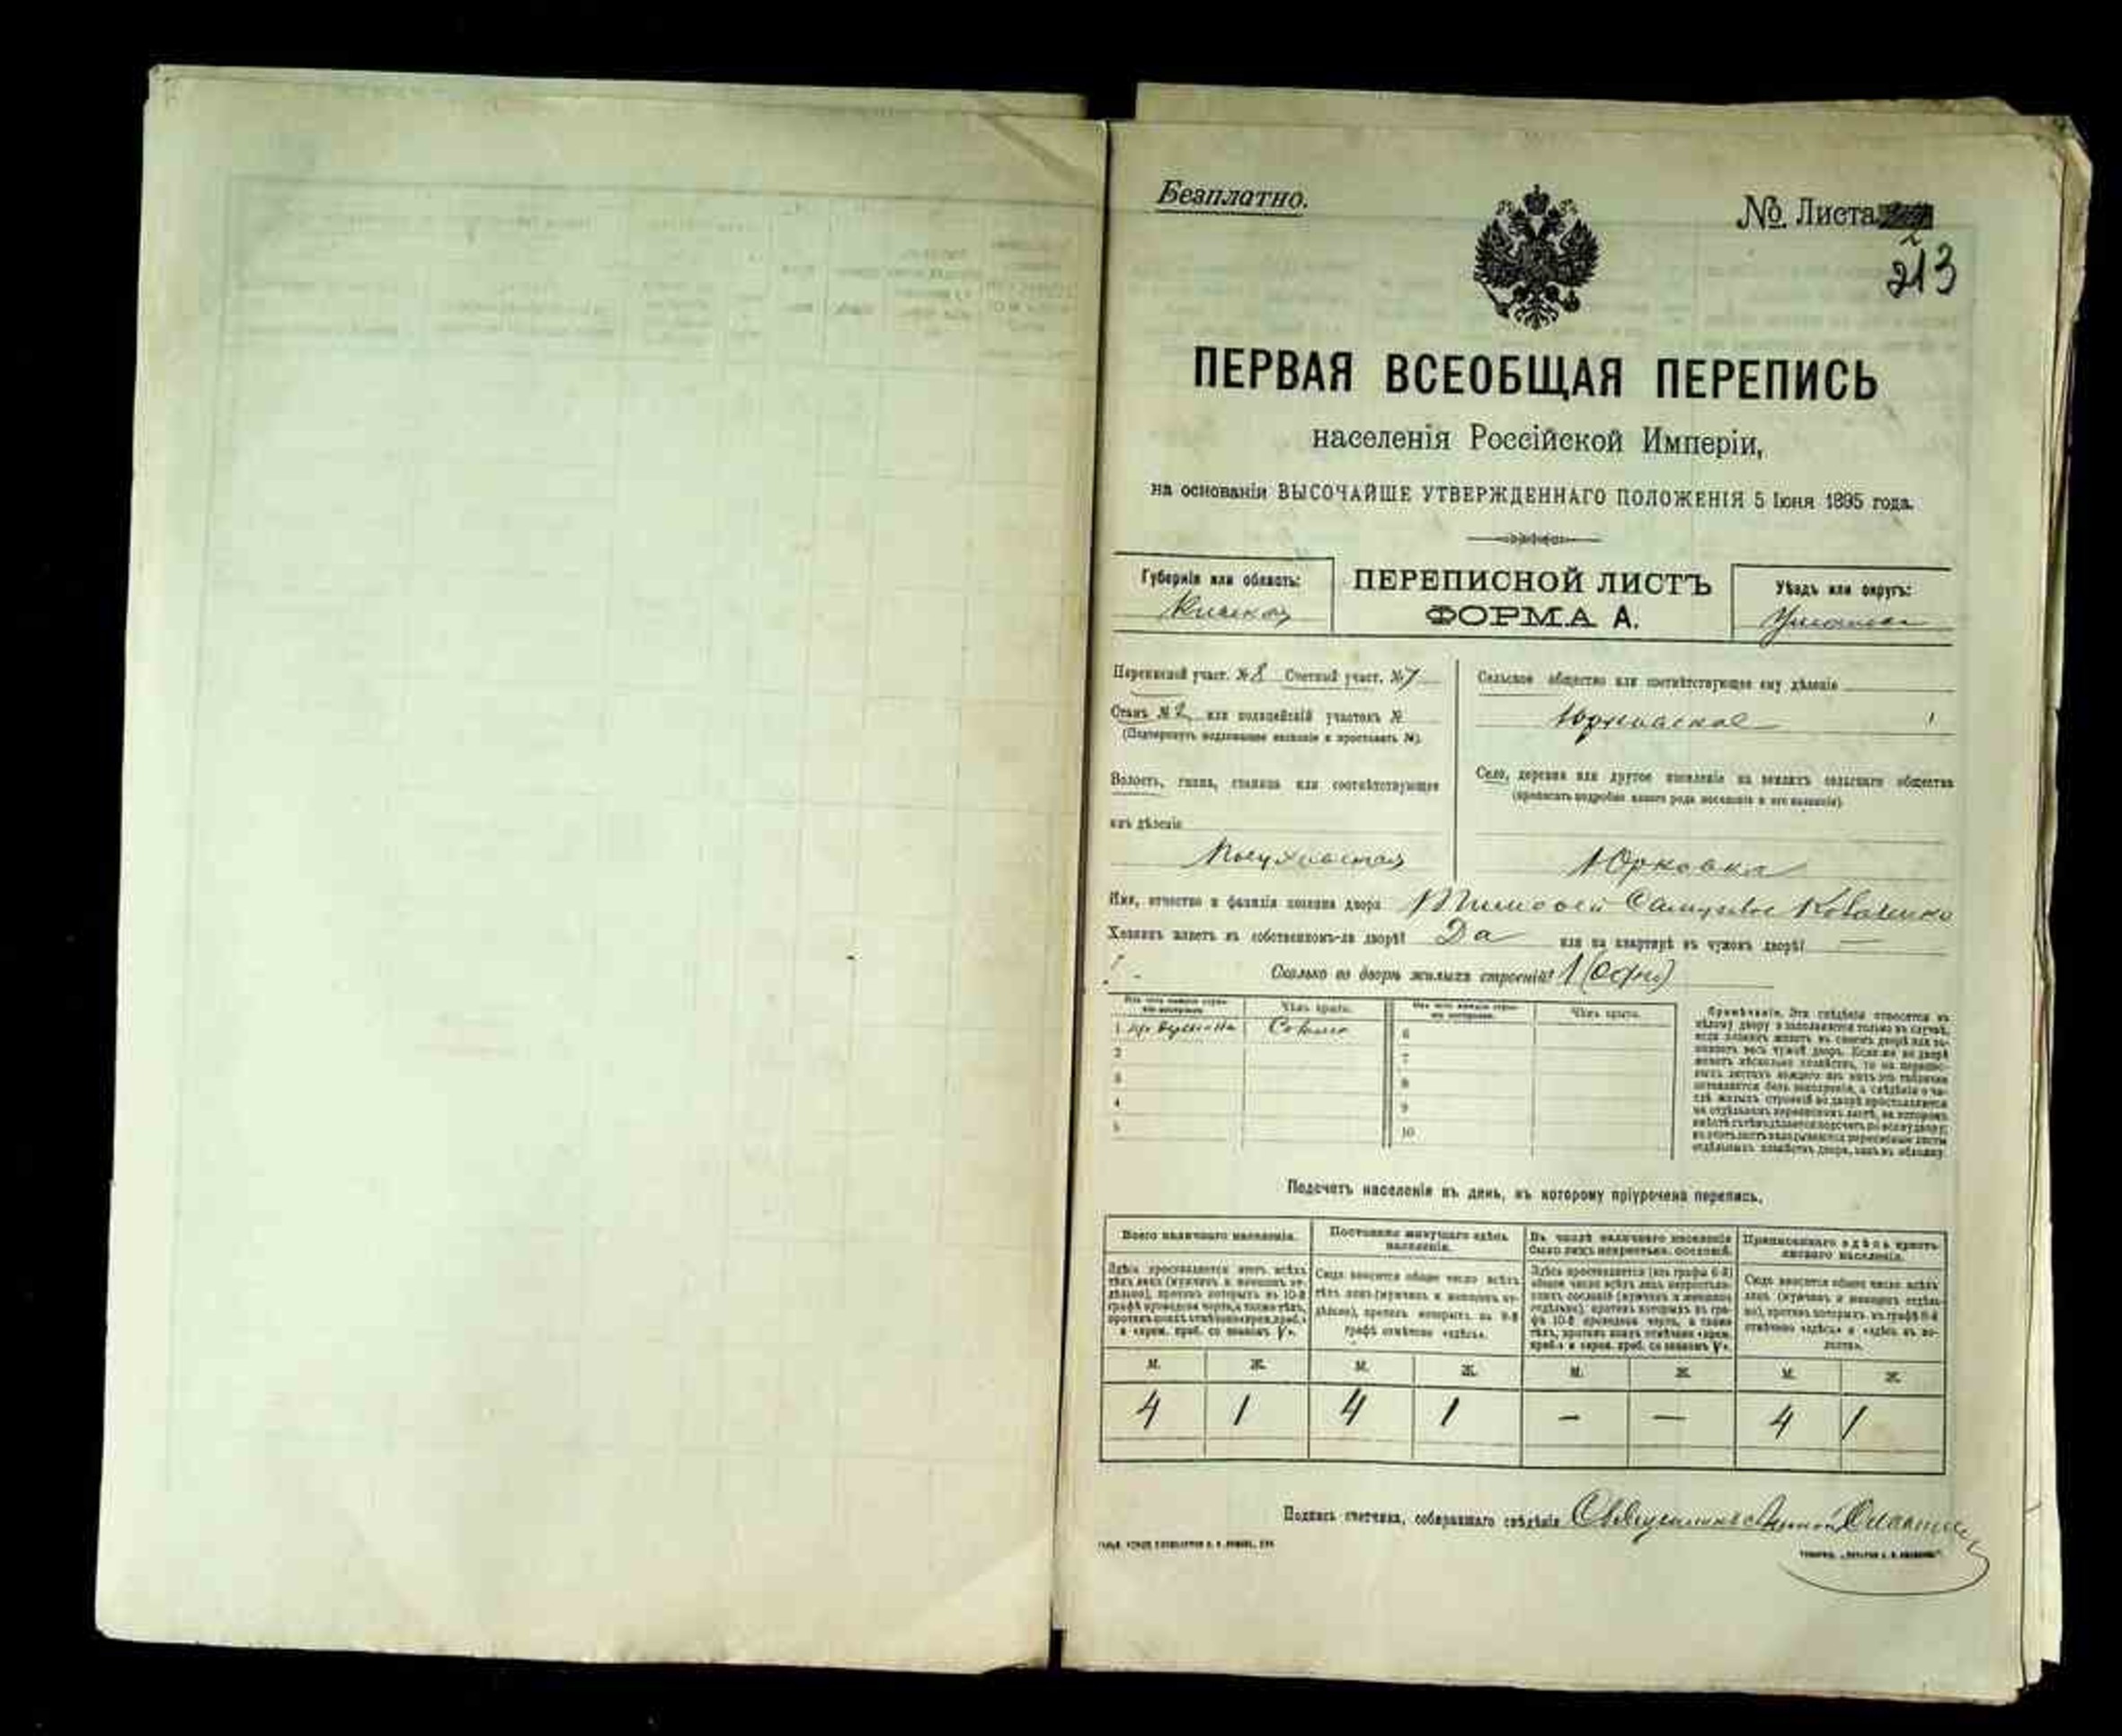 Безплатно.
№ Листа
213
ПЕРВАЯ ВСЕОБЩАЯ ПЕРЕПИСЬ
населенія Россійской Имперіи,
на основаніи ВЫСОЧАЙШЕ УТВЕРЖДЕННАГО ПОЛОЖЕНІЯ 5 Іюня 1895 года.
Губернія или область:
Кіевская
ПЕРЕПИСНОЙ ЛИСТЪ
ФОРМА А.
Уѣздъ или округъ:
Уманскій
Переписной участ. № 8 Счетный участ. № 7
Станъ № 2 или полицейскій участокъ №
(Подчеркнуть надлежащее названіе и проставить №).
Волость, гмина, станица или соотвѣтствующее
имъ дѣленіе
Сельское общество или соотвѣтствующее ему дѣленіе
Юрковское
Село, деревня или другое поселеніе на земляхъ сельскаго общества
(прописать подробно какого рода поселеніе и его названіе).
Юрковка
Имя, отчество и фамилія хозяина двора Тимофей
Хозяинъ живетъ въ собственномъ-ли дворѣ? Да или на квартирѣ въ чужомъ дворѣ? —
Сколько во дворѣ жилыхъ строеній? 1 (одно)
Чѣмъ крыто.
Чѣмъ крыто.
1
6
2
7
3
8
4
9
5
10
Примѣчаніе. Эти свѣдѣнія относятся къ
цѣлому двору и заполняются только въ случаѣ,
если хозяинъ живетъ въ своемъ дворѣ или за-
нимаетъ весь чужой дворъ. Если же во дворѣ
живетъ нѣсколько хозяйствъ, то на перепис-
ныхъ листахъ каждаго изъ нихъ эти таблички
оставляются безъ заполненія, а свѣдѣнія о чи-
слѣ жилыхъ строеній во дворѣ проставляются
на отдѣльномъ переписномъ листѣ, на которомъ
вмѣстѣ съ тѣмъ дѣлается подсчетъ по всему двору;
въ этотъ листъ вкладываются переписные листы
отдѣльныхъ хозяйствъ двора, какъ въ обложку.
Подсчетъ населенія въ день, къ которому пріурочена перепись.
Всего наличнаго населенія.
Здѣсь проставляется итогъ всѣхъ
тѣхъ лицъ (мужчинъ и женщинъ от-
дѣльно), противъ которыхъ въ 10-й
графѣ проведена черта, а также тѣхъ,
противъ коихъ отмѣчено «врем. преб.»
и «врем. преб. со знакомъ V».
Постоянно живущаго здѣсь
населенія.
Сюда вносится общее число всѣхъ
тѣхъ лицъ (мужчинъ и женщинъ от-
дѣльно), противъ которыхъ въ 9-й
графѣ отмѣчено «здѣсь».
Въ числѣ наличнаго населенія
было лицъ некрестьян. сословій.
Здѣсь проставляется (изъ графы 6-й)
общее число всѣхъ лицъ некрестьян-
скихъ сословій (мужчинъ и женщинъ
отдѣльно), противъ которыхъ въ гра-
фѣ 10-й проведена черта, а также
тѣхъ, противъ коихъ отмѣчено «врем.
преб.» и «врем. преб. со знакомъ V».
Приписаннаго здѣсь кресть-
янскаго населенія.
Сюда вносится общее число всѣхъ
лицъ (мужчинъ и женщинъ отдѣль-
но), противъ которыхъ въ графѣ 8-й
отмѣчено «здѣсь» и «здѣсь въ во-
лости».
М. Ж. М. Ж. М. Ж. М. Ж.
4 1 4 1 — — 4 1
Подпись счетчика, собиравшаго свѣдѣнія